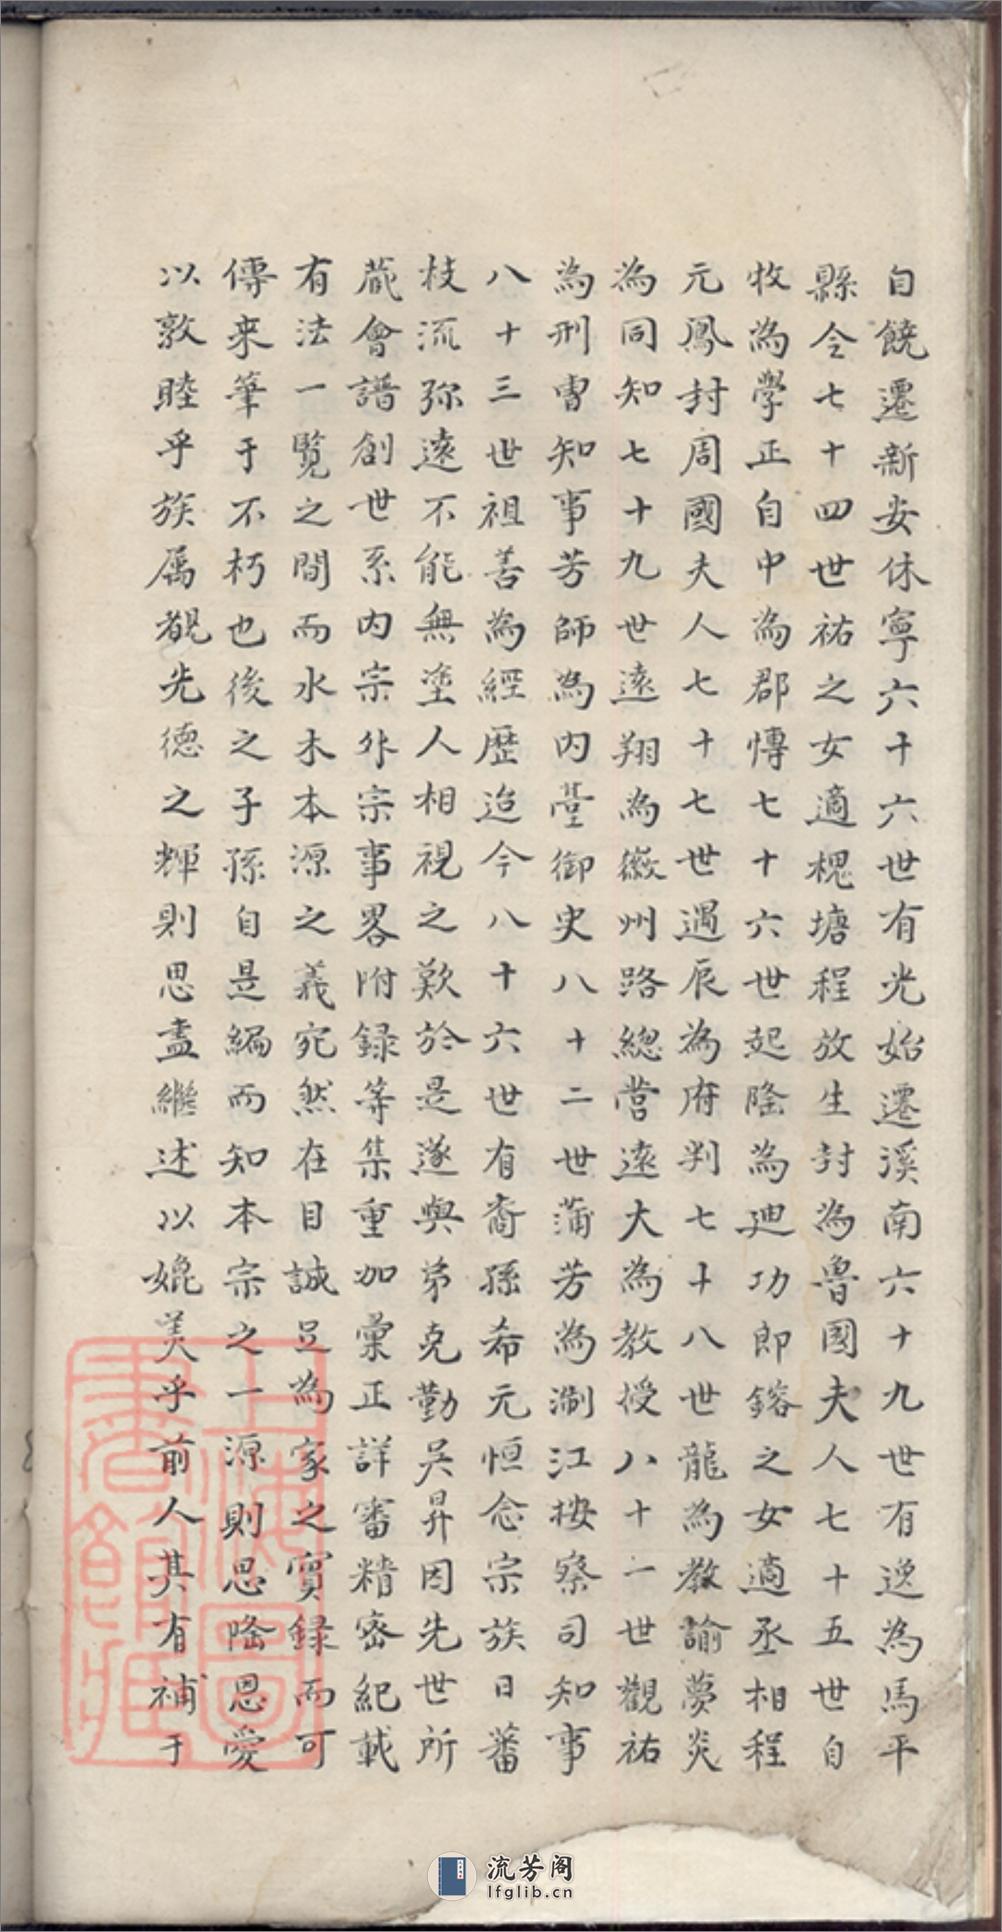 自饒遷新安休寧六十六世有光始遷溪南六十九世有逸為馬平
縣令七十四世祐之女適槐塘程放生封為魯國夫人七十五世自
牧為學正自中為郡慱七十六世起隆為廸功郎鎔之女適丞相程
元鳳封周國夫人七十七世遇辰為府判七十八世龍為教諭夢炎
為同知七十九世遠翔為徽州路總管遠大為教授八十一世觀祐
為刑曹知事芳師為內臺御史八十二世蒲芳為淛江按察司知事
八十三世祖善為經歷迨今八十六世有裔孫希元恒念宗族日蕃
枝流弥遠不能無塗人相視之歎於是遂與弟克勤吳昇因先世所
蔵會譜創世系內宗外宗事畧附録等集重加彙正詳審精密紀載
有法一覧之間而水木本源之義宛然在目誠足為家之實録而可
傳来筆于不朽也後之子孫自是編而知本宗之一源則思隆恩愛
以敦睦乎族属覩先德之輝則思盡繼述以媲美乎前人其有補于
上海圖書館藏
流芳阁
lfglib.cn